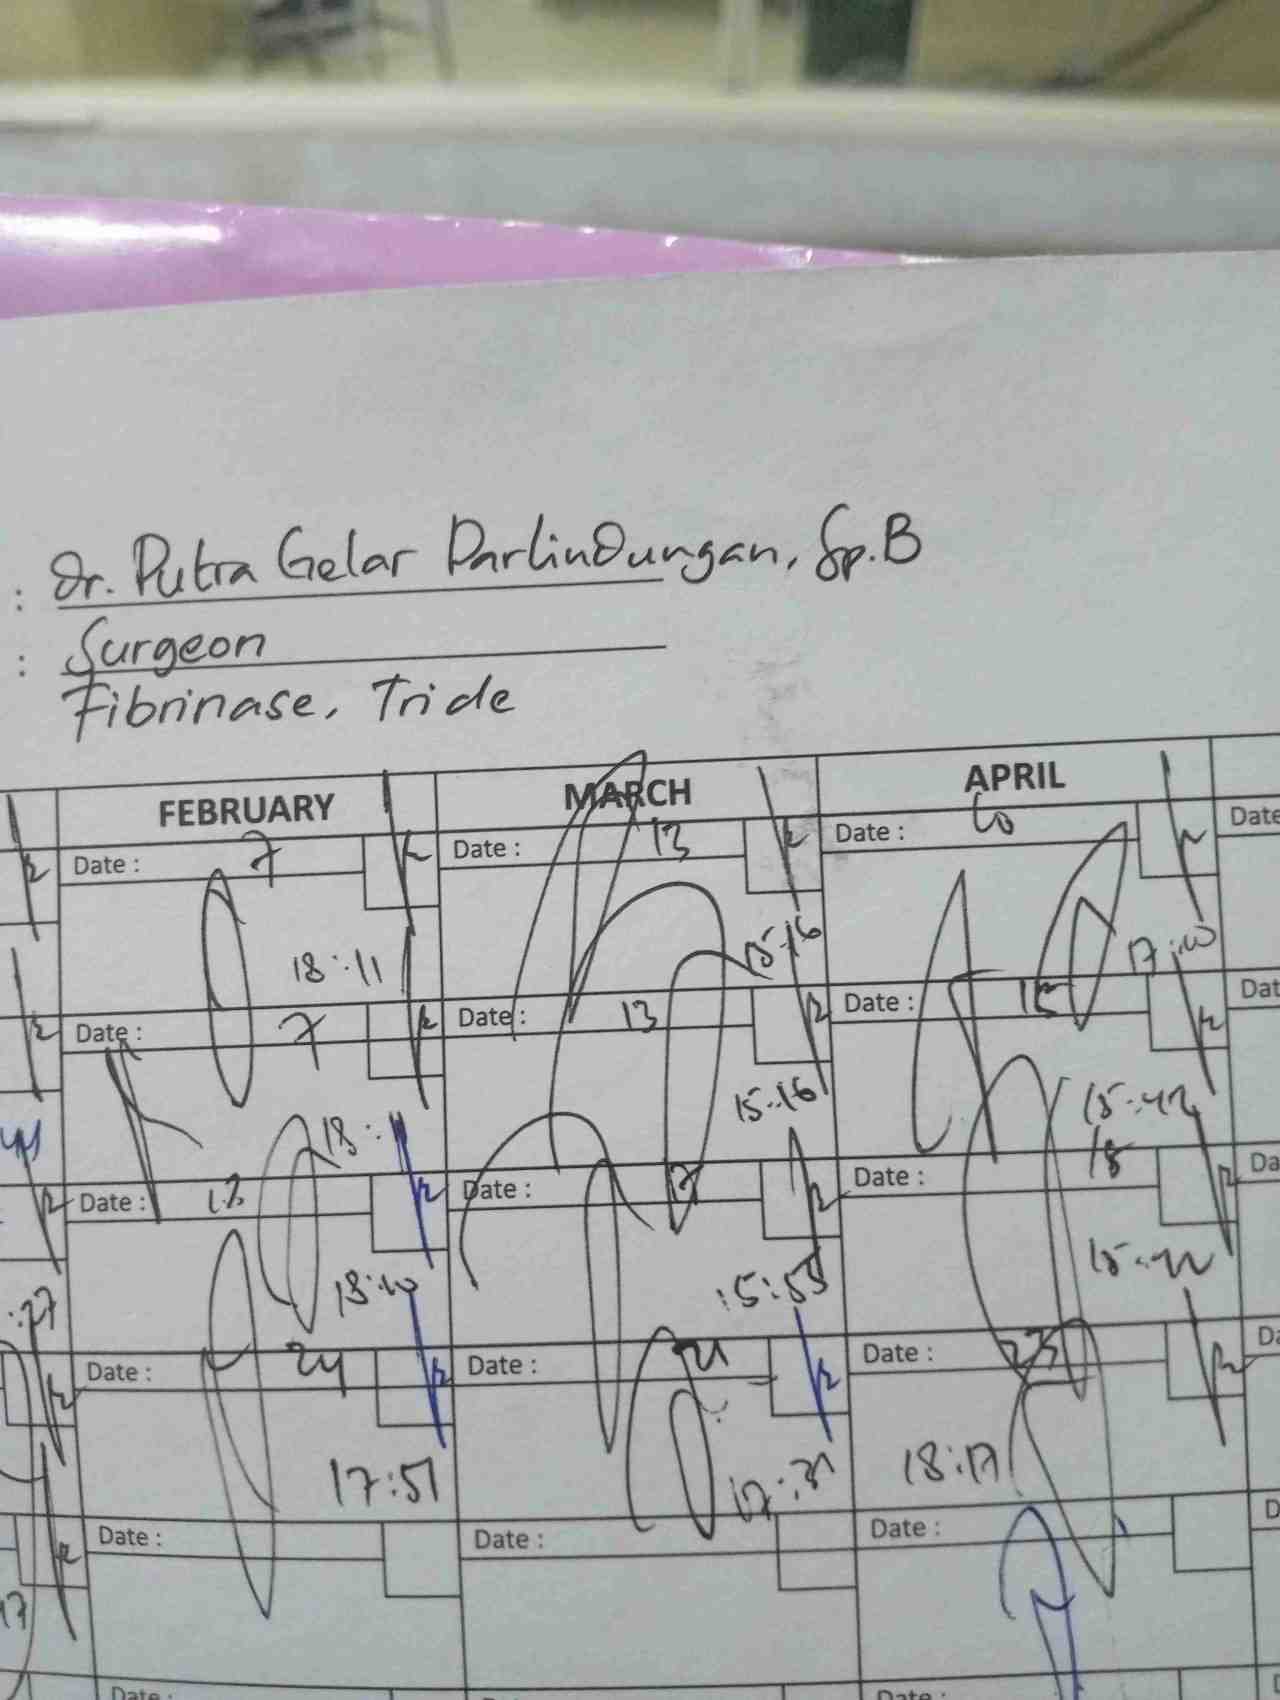 : Dr. Putra Gelar Parlindungan, Sp.B
: Surgeon
Fibrinase, Tride
FEBRUARY MARCH APRIL
Date : 7 Date : 13 Date : Date
18:11 15:16
Date : 7 Date : 13 Date : 15 Dat
18: 15:16 15:42
Date : Date : Date : 18 Da
15:55
Date : 24 Date : 21 Date : 23 Da
17:51 17:31 18:17
Date : Date : Date : D
Date : Date :